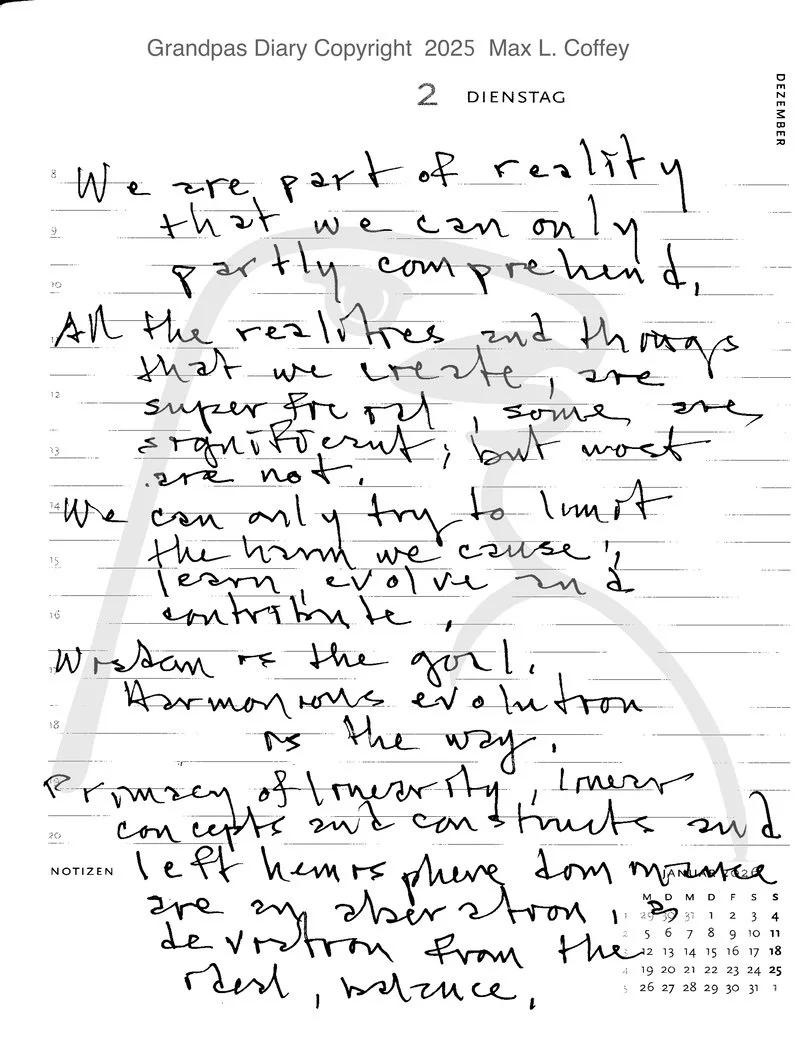 Grandpas Diary Copyright 2025 Max L. Coffey
2 DIENSTAG
DEZEMBER
8 We are part of reality
9 that we can only
10 partly comprehend.
All the realities and things
that we create, are
12 superficial, some are
13 significant; but most
are not.
14 We can only try to limit
15 the harm we cause,
learn, evolve and
16 contribute.
Wisdom is the goal.
Harmonious evolution
18 is the way.
Primacy of linearity, linear
20 concepts and constructs and
NOTIZEN left hemisphere dominance
JANUAR 2026
are an aberation, a
deviation from the
ideal, balance.
M D M D F S S
1 29 30 31 1 2 3 4
2 5 6 7 8 9 10 11
3 12 13 14 15 16 17 18
4 19 20 21 22 23 24 25
5 26 27 28 29 30 31 1